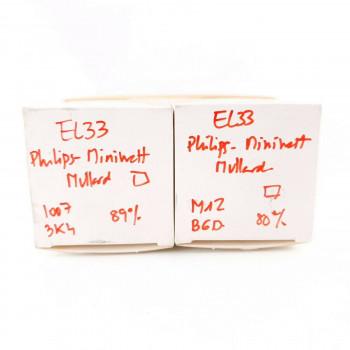 EL33
Philips-Miniwatt
Mullard
1007
3K4 89%
EL33
Philips-Miniwatt
Mullard
M1Z
B6D 80%